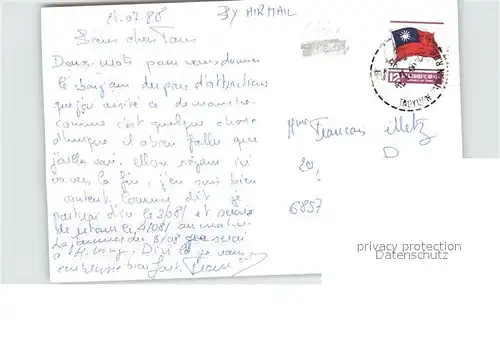 21.07.80
BY AIR MAIL
Biens chers Tous
Deux mots pour vous donner
le bonjour du parc d'attractions
que j'ai visité ce dimanche.
Comme c'est quelque chose
d'unique il a bien fallu que
j'aille voir. Mon séjour ici
va vers la fin, j'en suis bien
content. Comme dit je
partirai d'ici le 3/08 et serai
de retour le 4/08 au matin
La journée du 3/08 serai
à H.
embrasse bien fort.
Mme Francois
20,
6857
TAOYUAN
privacy protection
Datenschutz